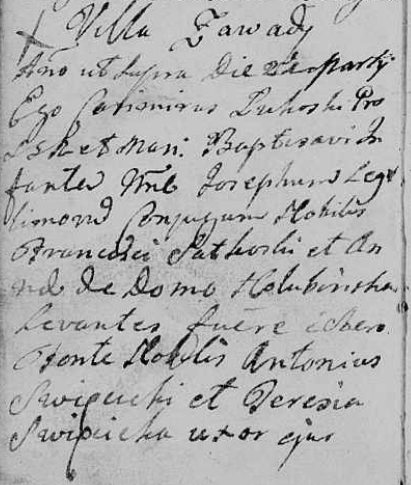 Villa Zawady
Ano ut Supra Die
Ego Casimirus Luhoski Pro
et Man: Baptisavi In
fantes Nne Josephum Legi
timorum Conjugum Nobilis
Francisci Sutkoski et An
na de Domo Holubinska
Levantes fuere e Sacro
Fonte Nobilis Antonius
Swięcicki et Teresia
Swięcicka uxor ejus